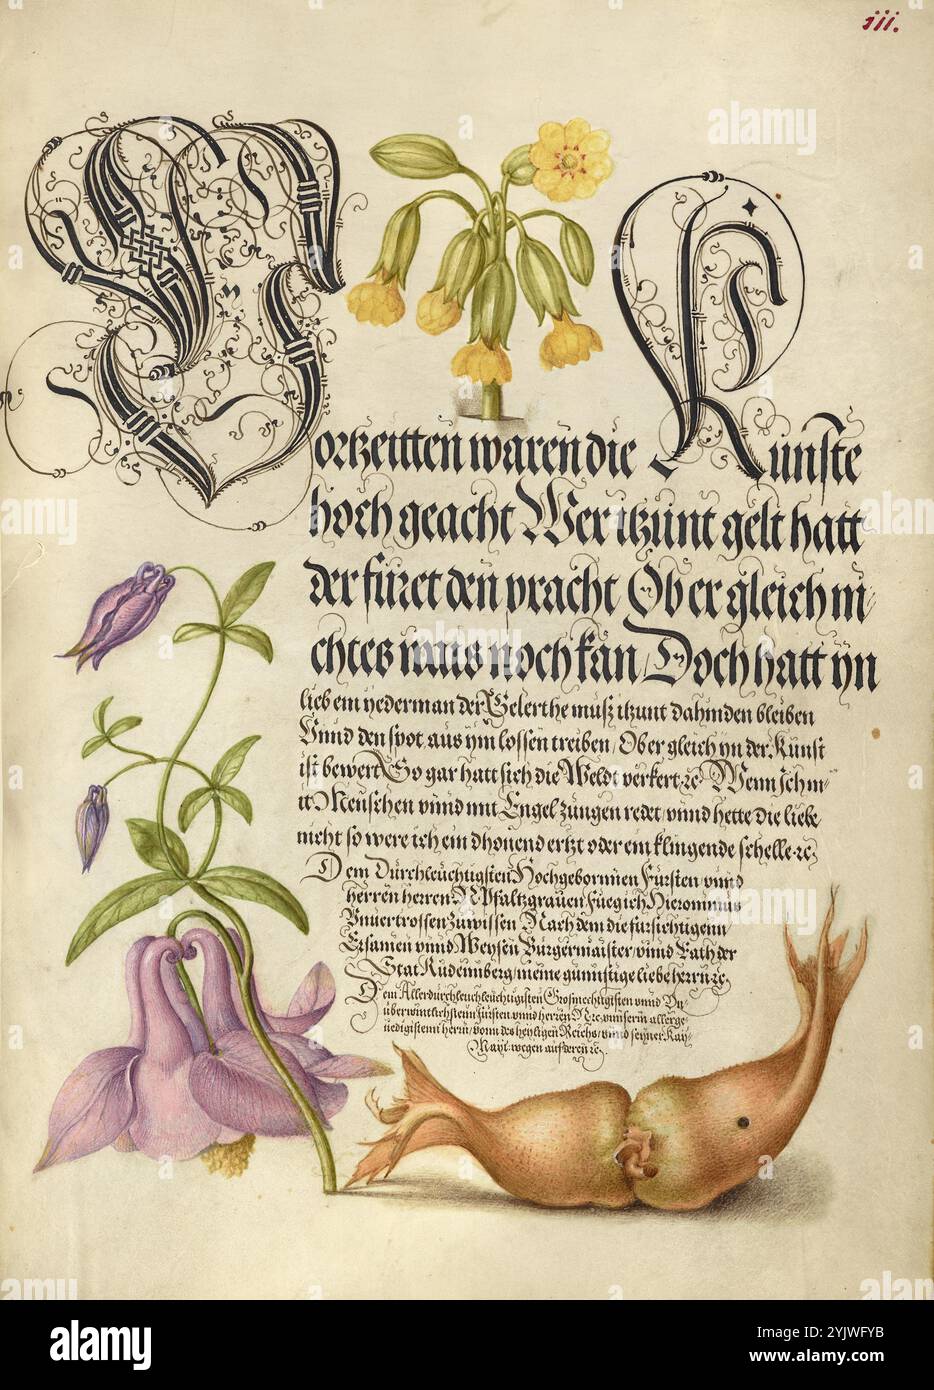 iii.
Vorzeitten waren die Künste
hoch geacht Wer itzunt gelt hatt
der füret den pracht Ob er gleich ni,
chtes wais noch kan, Doch hatt yn
lieb ein yederman der Gelerthe musz itzunt dahinden bleiben
Vnnd den spot aus ym lossen treiben, Ober gleich yn der Kunst
ist bewert So gar hatt sich die Weldt verkert ꝛc, Wenn ich m-
it Menschen vnnd mit Engel Zungen redet, vnnd hette die liebe
nicht so were ich ein dhonend ertzt oder ein klingende schelle ꝛc,
Dem Durchleuchtigsten Hochgebornnen Fürsten, vnnd
herren herren N. Pfaltzgrauen Hieronimus
Nach dem die fürsichtigenn,
Ersamen vnnd Weysen Burgermaister, vnnd Rath der
Stat, meine günnstige liebe herrn ꝛc,
Dem Allerdurchleuchtigisten Grosmechtigisten vnnd
Fürsten, vnnd herren N. ꝛc, vnnserm allerge,
nedigistenn herrn, vonn des heyligen Reichs, vnnd seyner Kay,
Mayt. wegen ꝛc,
alamy
Image ID: 2YJWFYB
www.alamy.com